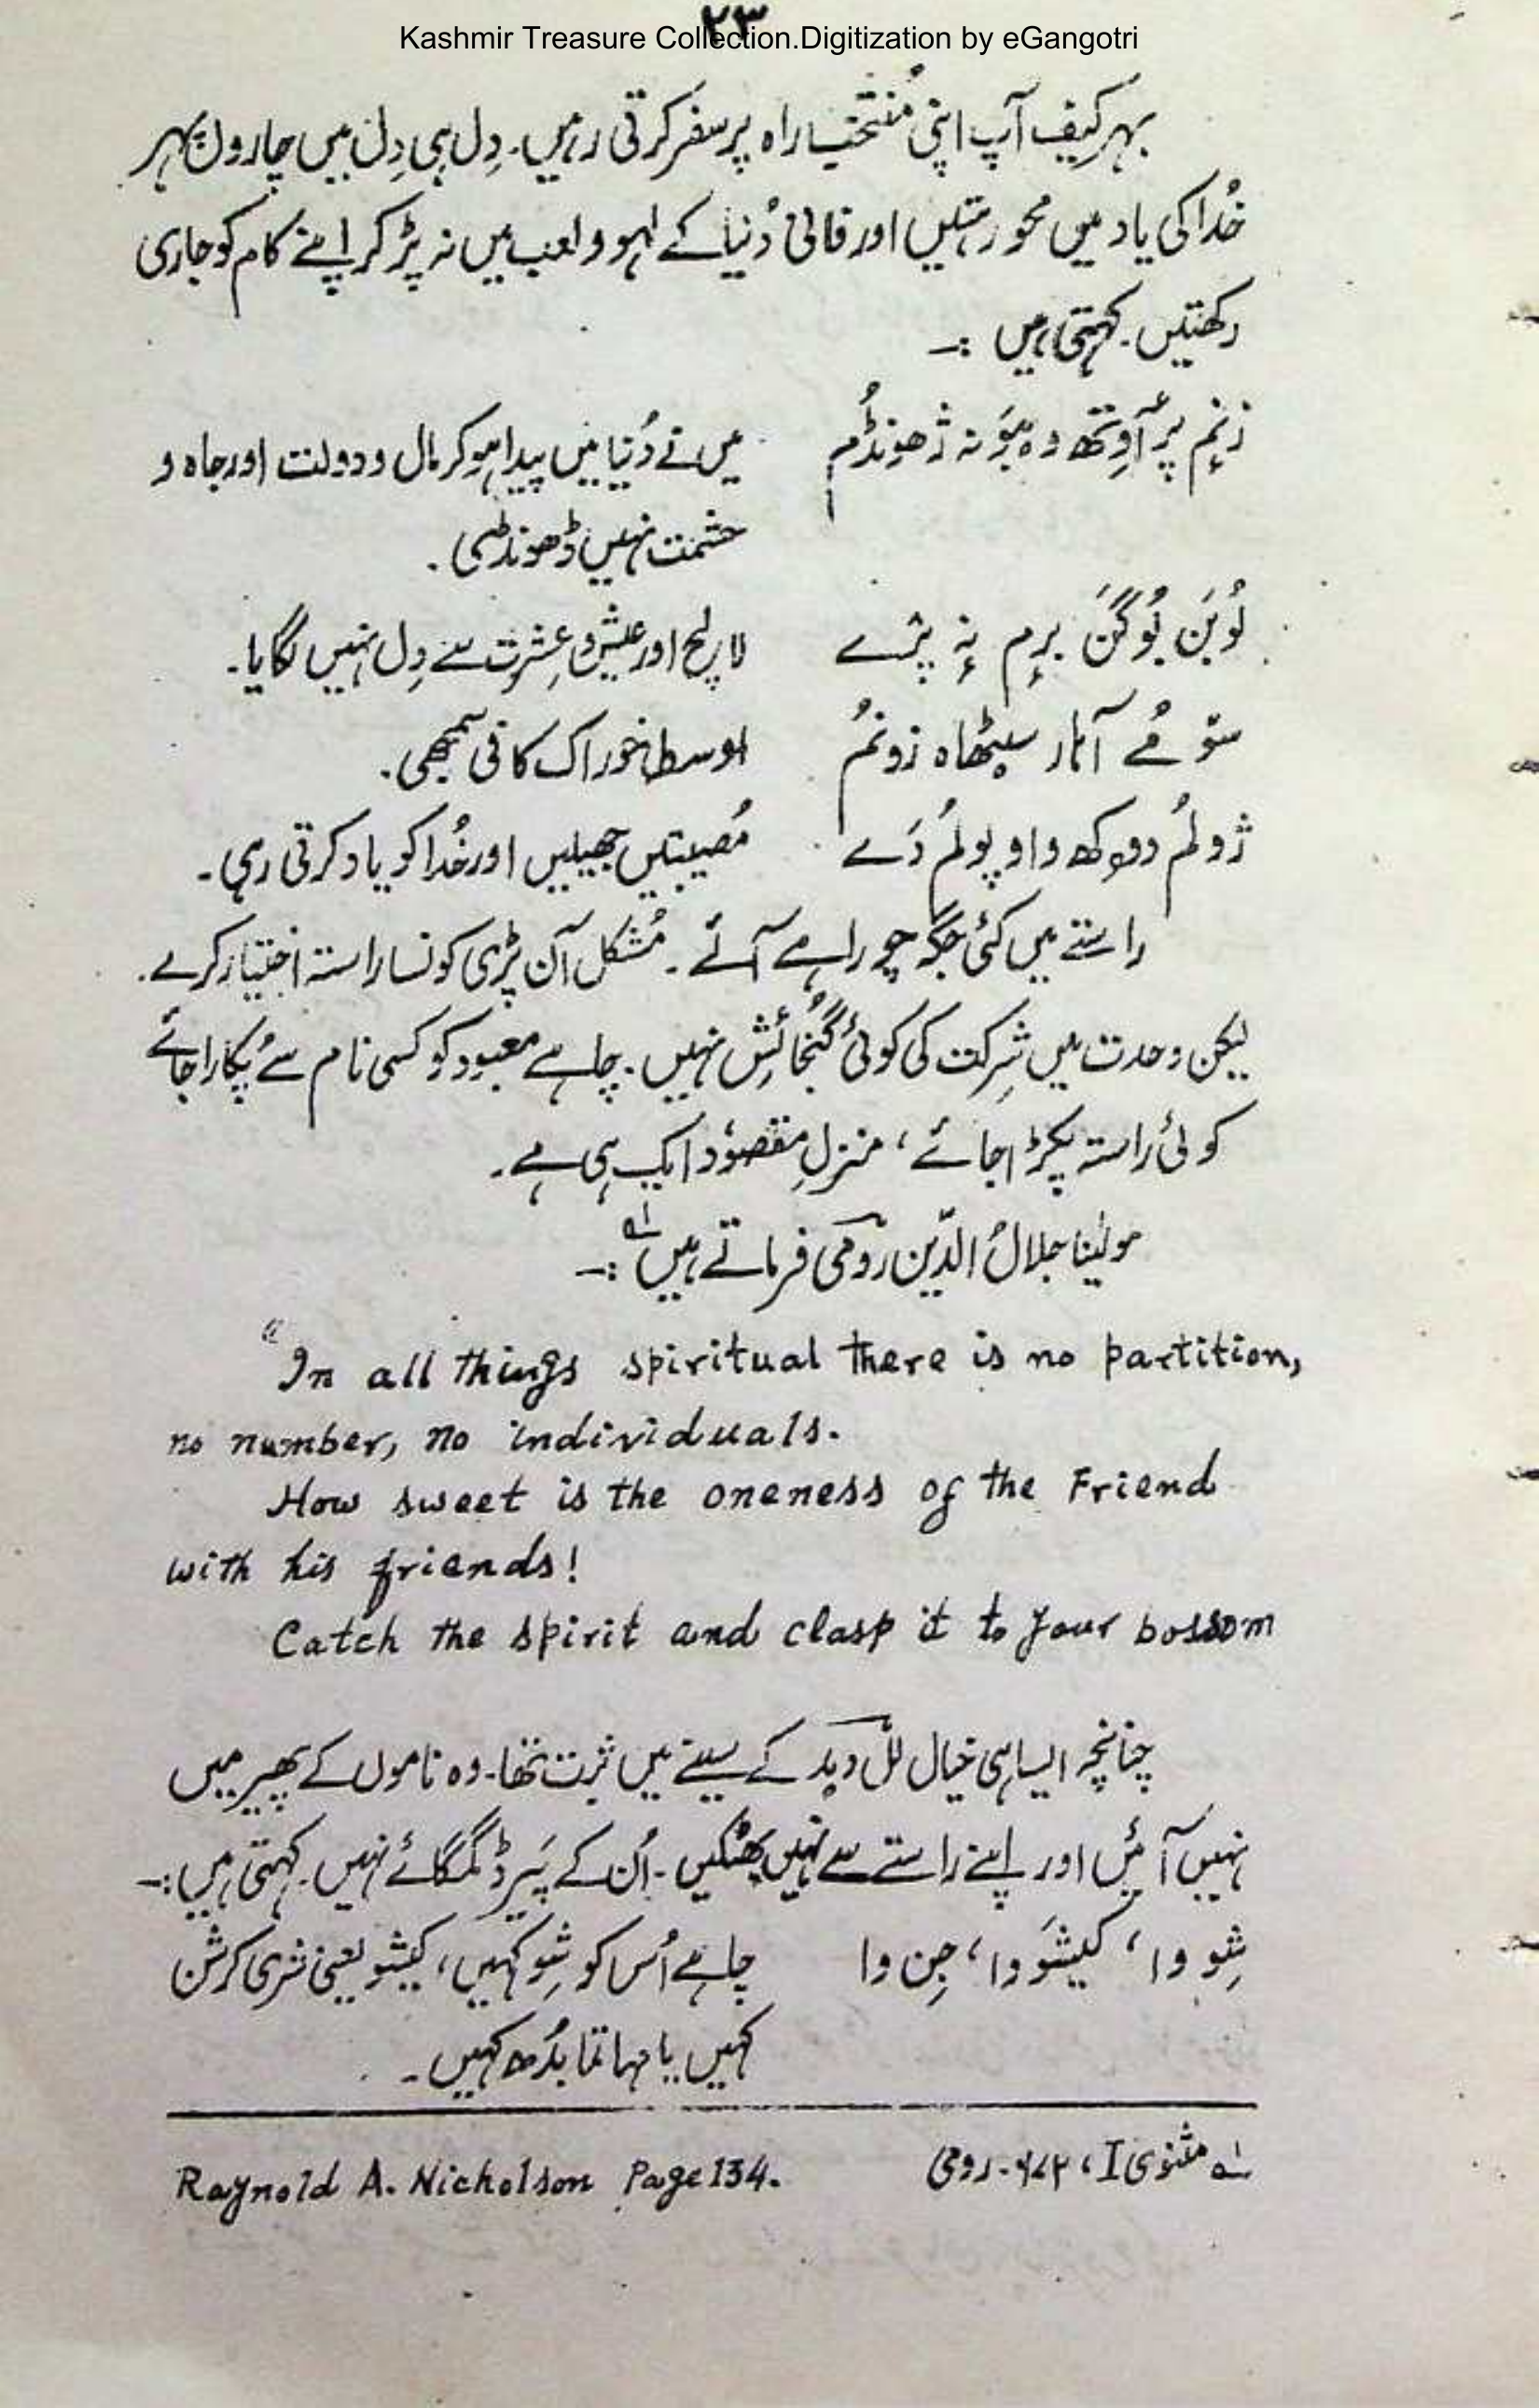 ۲۳
Kashmir Treasure Collection.Digitization by eGangotri
بہرکیف آپ اپنی مُنتخب راہ پر سفر کرتی رہیں۔ دِل ہی دِل میں چاروں پہر
خُدا کی یاد میں محو رہتیں اور فانی دُنیا کے لہو و لعب میں نہ پڑ کر اپنے کام کو جاری
رکھتیں۔ کہتی ہیں :۔
زنمِ پرٛآوِتھ وہ بوَ نہ ژھونڈُم میں نے دُنیا میں پیدا ہو کر مال و دولت اور جاہ و
حشمت نہیں ڈھونڈھی۔
لُوبَن بُوگَن برم نہٕ پرٛے لالچ اور عیش و عِشرت سے دِل نہیں لگایا۔
سوٚ مُے آہار سیٹھاہ زونُم اوسط خوراک کافی سمجھی۔
ژولُم دوکھ واو پولُم دَے مُصیبتیں جھیلیں اور خُدا کو یاد کرتی رہی۔
راستے میں کئی جگہ چوراہے آئے۔ مُشکل آن پڑی کونسا راستہ اختیار کرے۔
لیکن وحدت میں شِرکت کی کوئی گُنجائش نہیں۔ چاہے معبود کو کسی نام سے پُکارا جائے
کوئی راستہ پکڑا جائے، منزلِ مقصوُد ایک ہی ہے۔
مولینا جلالُ الدّین رومیؒ فرماتے ہیں ۱؎ :۔
"In all things spiritual there is no partition,
no number, no individuals.
How sweet is the oneness of the Friend
with his friends!
Catch the spirit and clasp it to your bossom
چنانچہ ایسا ہی خیال للّ دید کے سینے میں ثبت تھا۔ وہ ناموں کے پھیر میں
نہیں آئیں اور اپنے راستے سے نہیں بھٹکیں۔ اُن کے پَیر ڈگمگائے نہیں۔ کہتی ہیں :۔
شِو وا، کیشَو وا، جِن وا چاہے اُس کو شِو کہیں، کیشو یعنی شری کرشن
کہیں یا مہاتما بُدھ کہیں۔
۱؎ مثنوی I، ۶۸۲۔ رومی Raynold A. Nicholson Page 134.